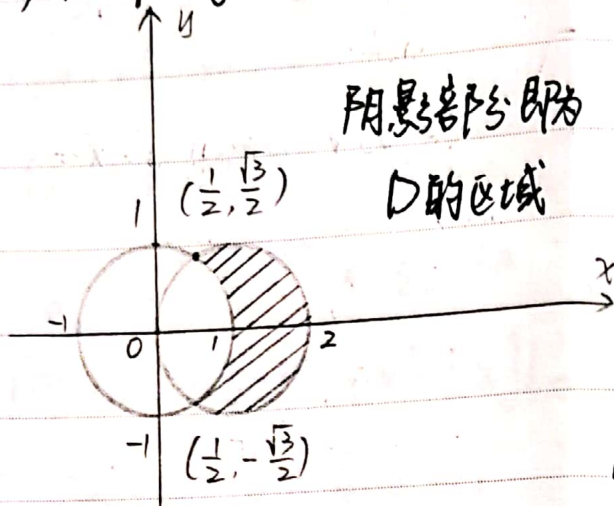 y
阴影部分即为
D的区域
(1/2, √3/2)
1
x
-1
0
1
2
-1
(1/2, -√3/2)